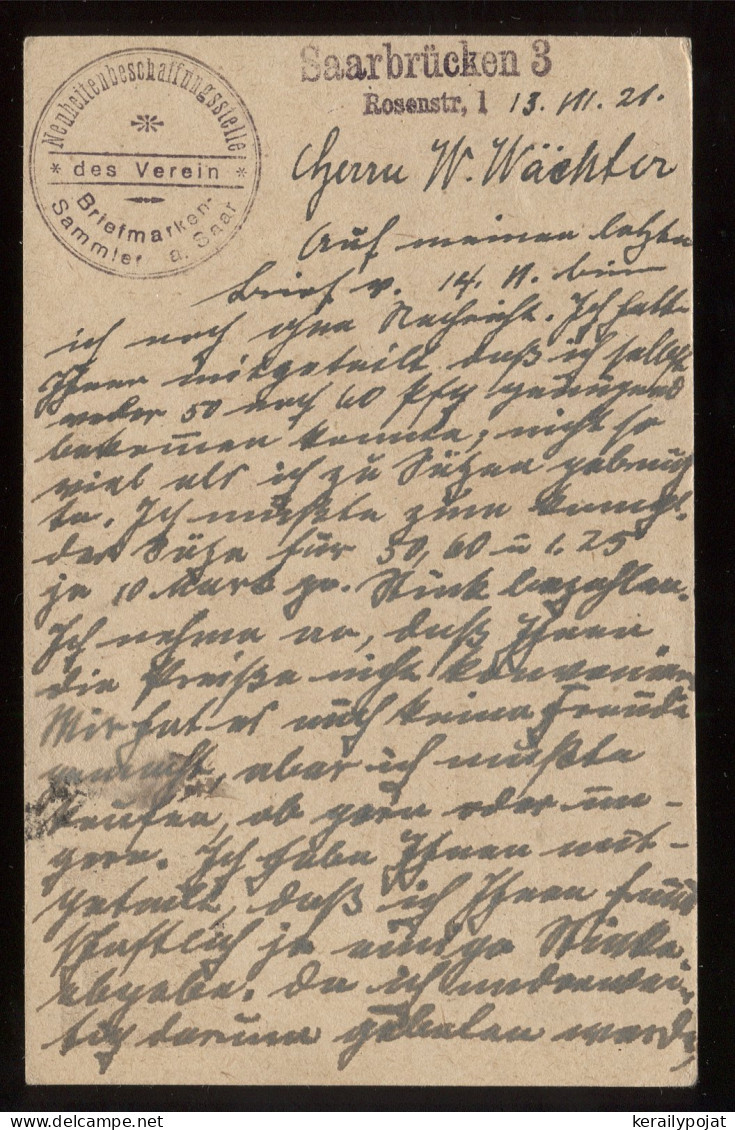 Neuheitenbeschaffungsstelle
* des Verein *
Briefmarken-
Sammler a. Saar
Saarbrücken 3
Rosenstr, 1 13. III. 21.
Herrn W. Wächter
Auf meinen letzten
Brief v. 14. II. bin
ich noch ohne Nachricht. Ich hatte
Ihnen mitgeteilt daß ich selbst
weder 50 noch 60 Pfg genügend
bekommen konnte, nicht so
viel als ich zu Sätzen gebrauch
te. Ich mußte zum
der Sätze für 50, 60 u 1.25
je 10 Mark pr. Stück bezahlen.
Ich nehme an, daß Ihnen
die Preiße nicht konvenieren
Mir hat es auch keine Freude
gemacht, aber ich mußte
kaufen, ob gern oder un-
gern. Ich habe Ihnen mit-
geteilt, daß ich Ihnen freund
schaftlich je einige Stücke
abgebe. Da ich anderwei-
tig darum gebeten werde,
kerailypojat.com